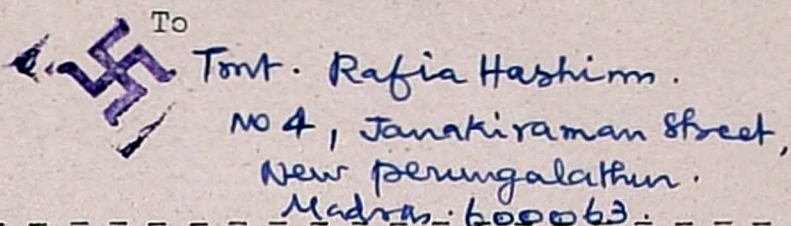 To
Tmt. Rafia Hashim.
No 4, Janakiraman Street,
New Perungalathur.
Madras. 600063.